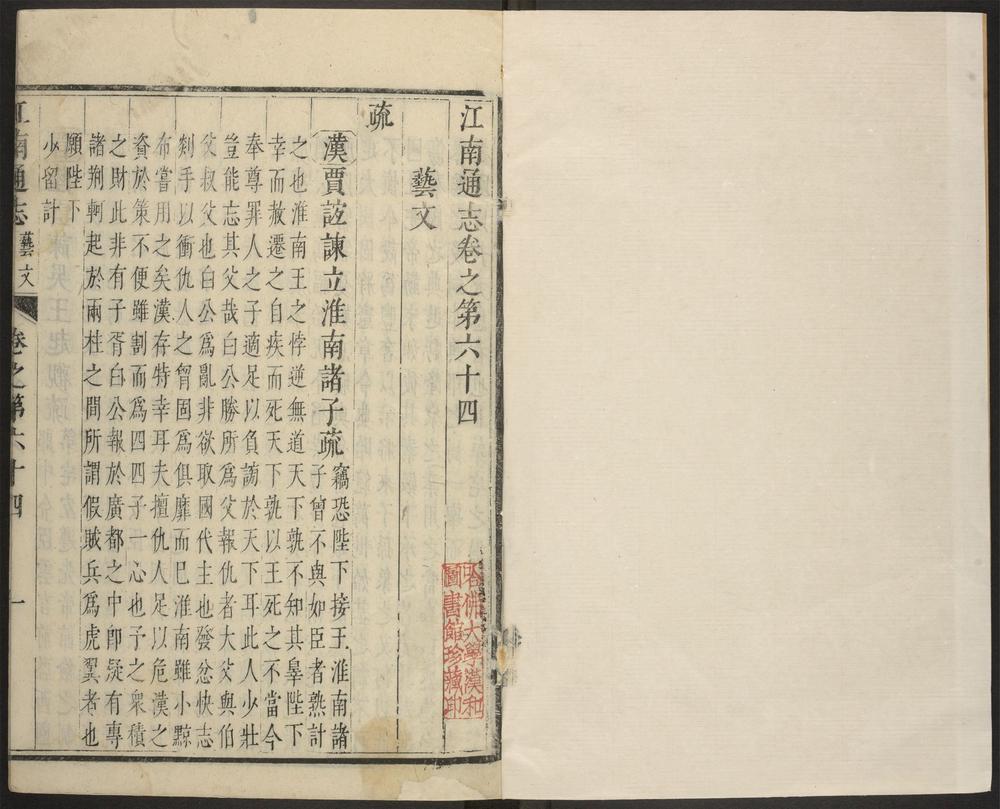 江南通志卷之第六十四
藝文
疏
漢賈誼諫立淮南諸子疏
竊恐陛下接王淮南諸
子曾不與如臣者熟計
之也淮南王之悖逆無道天下孰不知其辠陛下
幸而赦遷之自疾而死天下孰以王死之不當今
奉尊罪人之子適足以負謗於天下耳此人少壯
豈能忘其父哉白公勝所爲父報仇者大父與伯
父叔父也白公爲亂非欲取國代主也發忿快志
剡手以衝仇人之胷固爲俱靡而已淮南雖小黥
布嘗用之矣漢存特幸耳夫擅仇人足以危漢之
資於策不便雖割而爲四四子一心也予之衆積
之財此非有子胥白公報於廣都之中卽疑有專
諸荆軻起於兩柱之間所謂假賊兵爲虎翼者也
願陛下
少留計
江南通志
藝文
卷之第六十四
一
哈佛大學漢和
圖書館珍藏印